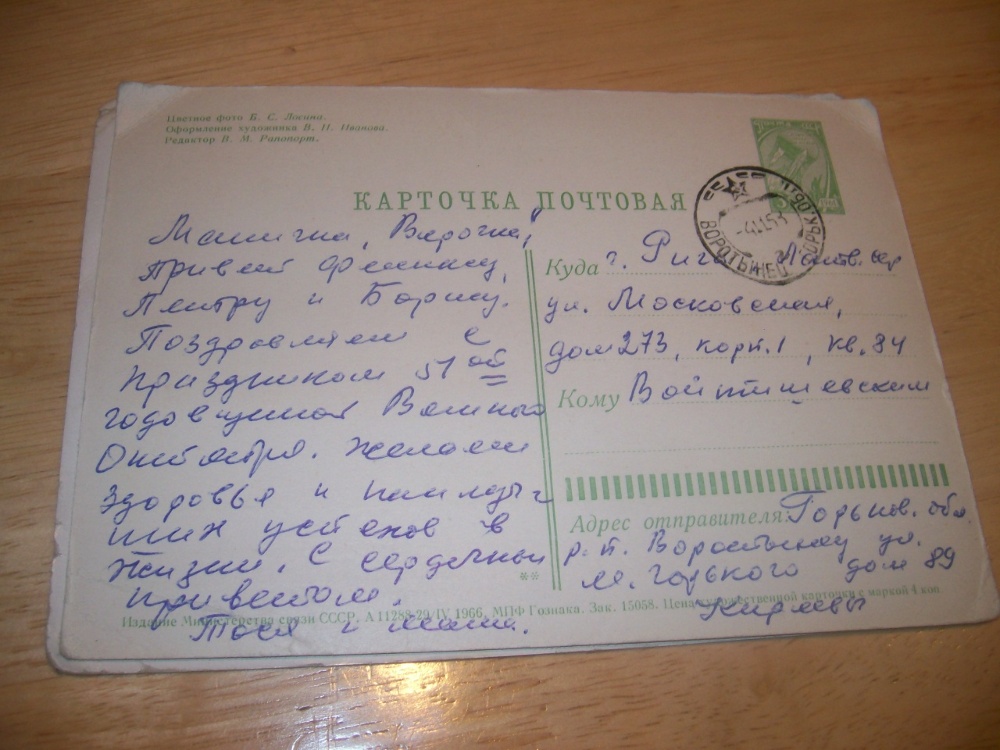 Цветное фото Б. С. Локина.
Оформление художника В. П. Иванова.
Редактор В. М. Рапопорт.
КАРТОЧКА ПОЧТОВАЯ
ВОРОТЫНЕЦ ГОРЬК. ОБЛ.
Манична, Верочка,
Привет Феликсу,
Пектру и Борису.
Поздравляем с
праздником 51ой
годовщиной Великого
Октября. Желаем
Здоровья и наилучш
ших успехов в
жизни. С сердечным
приветом.
Тося и Маша.
Куда г. Рига Латв. ССР
ул. Московская,
дом 273, корп. 1, кв. 84
Кому Войтишевским
Адрес отправителя: Горьков. обл.
р. п. Воротынец ул.
М. Горького дом 89
Киреевы
**
Издание Министерства связи СССР, А 11288 29/IV 1966, МПФ Гознака. Зак. 15058. Цена художественной карточки с маркой 4 коп.